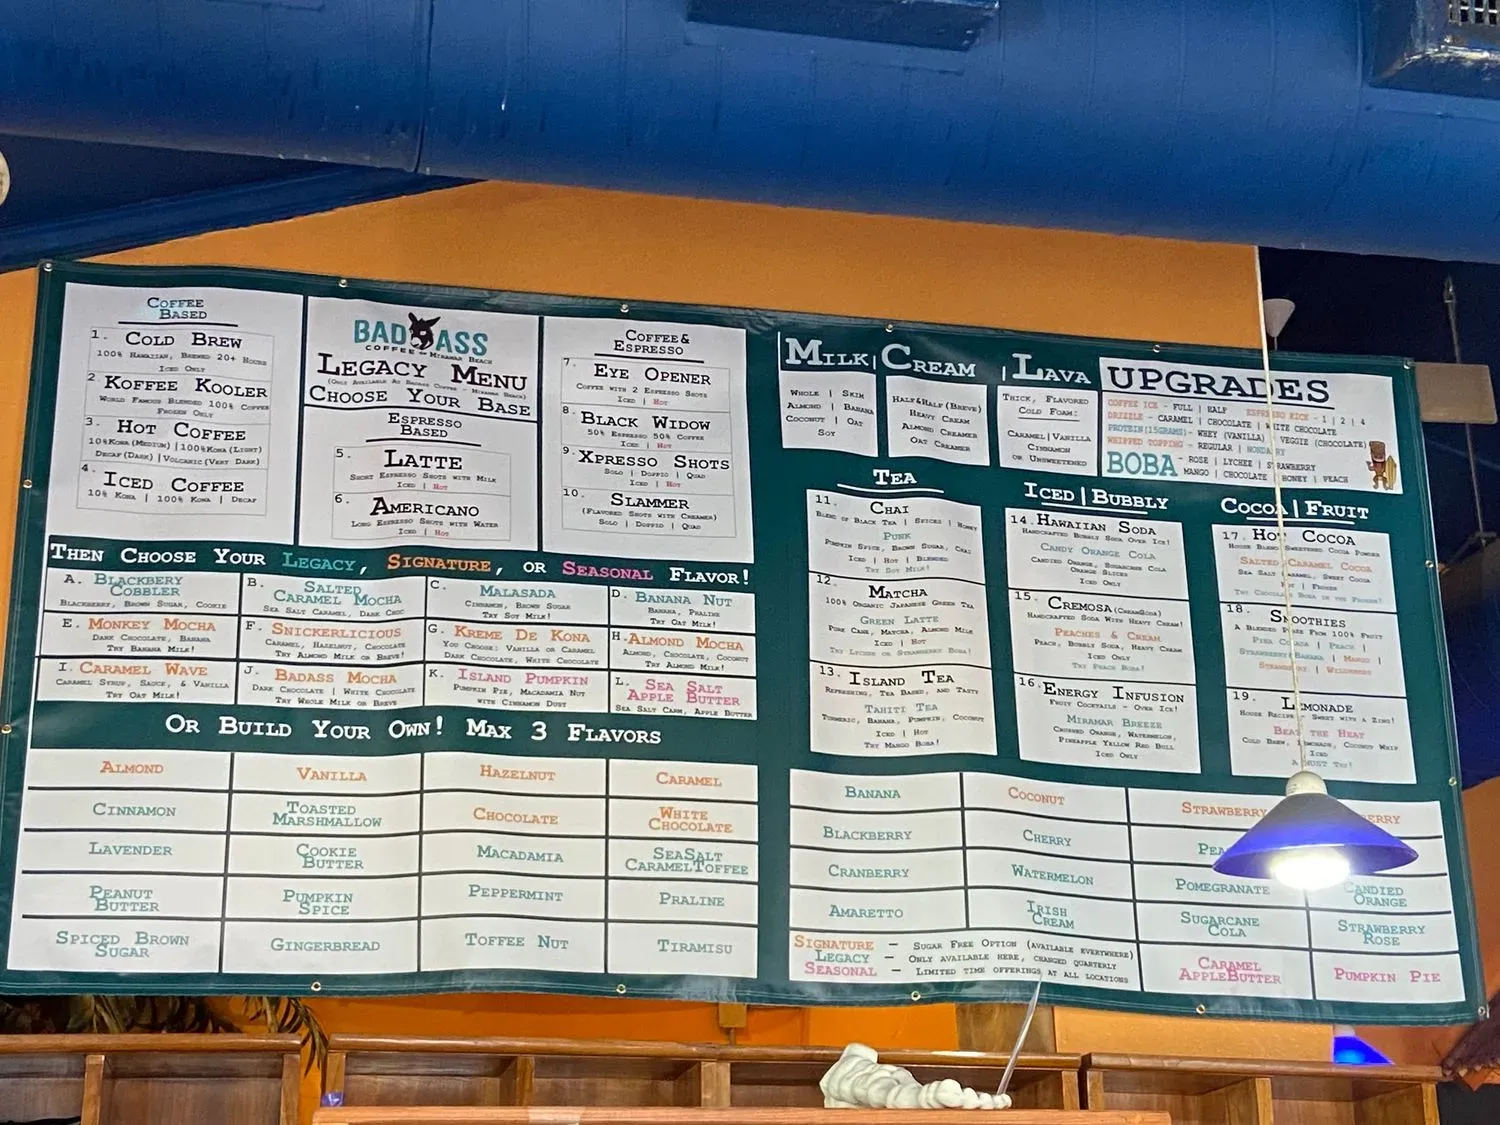 Coffee
Based
1. Cold Brew
100% Hawaiian, Brewed 20+ Hours
Iced Only
2 Koffee Kooler
World Famous Blended 100% Coffee
Frozen Only
3. Hot Coffee
10%Kona(Medium)|100%Kona(Light)
Decaf(Dark)|Volcanic(Very Dark)
4. Iced Coffee
10% Kona | 100% Kona | Decaf
BAD ASS
COFFEE of Miramar Beach
Legacy Menu
(Only Available At Badass Coffee - Miramar Beach)
Choose Your Base
Espresso
Based
5. Latte
Short Espresso Shots with Milk
Iced | Hot
6. Americano
Long Espresso Shots with Water
Iced | Hot
Coffee&
Espresso
7. Eye Opener
Coffee with 2 Espresso Shots
Iced | Hot
8. Black Widow
50% Espresso 50% Coffee
Iced | Hot
9. Xpresso Shots
Solo | Doppio | Quad
Iced | Hot
10. Slammer
(Flavored Shots with Creamer)
Solo | Doppio | Quad
Then Choose Your Legacy, Signature, or Seasonal Flavor!
A. Blackbery
Cobbler
Blackberry, Brown Sugar, Cookie
B. Salted
Caramel Mocha
Sea Salt Caramel, Dark Choc
C. Malasada
Cinnamon, Brown Sugar
Try Soy Milk!
D. Banana Nut
Banana, Praline
Try Oat Milk!
E. Monkey Mocha
Dark Chocolate, Banana
Try Banana Milk!
F. Snickerlicious
Caramel, Hazelnut, Chocolate
Try Almond Milk or Breve!
G. Kreme De Kona
You Choose: Vanilla or Caramel
Dark Chocolate, White Chocolate
H. Almond Mocha
Almond, Chocolate, Coconut
Try Almond Milk!
I. Caramel Wave
Caramel Syrup, Sauce, & Vanilla
Try Oat Milk!
J. Badass Mocha
Dark Chocolate | White Chocolate
Try Whole Milk or Breve
K. Island Pumpkin
Pumpkin Pie, Macadamia Nut
with Cinnamon Dust
L. Sea Salt
Apple Butter
Sea Salt Carm, Apple Butter
Or Build Your Own! Max 3 Flavors
Almond
Vanilla
Hazelnut
Caramel
Cinnamon
Toasted
Marshmallow
Chocolate
White
Chocolate
Lavender
Cookie
Butter
Macadamia
SeaSalt
CaramelToffee
Peanut
Butter
Pumpkin
Spice
Peppermint
Praline
Spiced Brown
Sugar
Gingerbread
Toffee Nut
Tiramisu
Milk | Cream | Lava
Whole | Skim
Almond | Banana
Coconut | Oat
Soy
Half&Half(Breve)
Heavy Cream
Almond Creamer
Oat Creamer
Thick, Flavored
Cold Foam:
Caramel|Vanilla
Cinnamon
or Unsweetened
UPGRADES
COFFEE ICE - FULL | HALF ESPRESSO KICK - 1 | 2 | 4
DRIZZLE - CARAMEL | CHOCOLATE | WHITE CHOCOLATE
PROTEIN(15GRAMS)- WHEY (VANILLA) | VEGGIE (CHOCOLATE)
WHIPPED TOPPING - REGULAR |
BOBA - ROSE | LYCHEE | STRAWBERRY
MANGO | CHOCOLATE | HONEY | PEACH
Tea
11. Chai
Blend of Black Tea | Spices | Honey
Punk
Pumpkin Spice, Brown Sugar, Chai
Iced | Hot | Blended
Try Soy Milk!
12. Matcha
100% Organic Japanese Green Tea
Green Latte
Pure Cane, Matcha, Almond Milk
Iced | Hot
Try Lychee or Strawberry Boba!
13. Island Tea
Refreshing, Tea Based, and Tasty
Tahiti Tea
Turmeric, Banana, Pumpkin, Coconut
Iced | Hot
Try Mango Boba!
Iced|Bubbly
14. Hawaiian Soda
Handcrafted Bubbly Soda Over Ice!
Candy Orange Cola
Candied Orange, Sugarcane Cola
Orange Slices
Iced Only
15. Cremosa(CreamSoda)
Handcrafted Soda With Heavy Cream!
Peaches & Cream
Peach, Bubbly Soda, Heavy Cream
Iced Only
Try Peach Boba!
16. Energy Infusion
Fruit Cocktails - Over Ice!
Miramar Breeze
Crushed Orange, Watermelon,
Pineapple Yellow Red Bull
Iced Only
Cocoa|Fruit
17. Hot Cocoa
House Blend Sweetened Cocoa Powder
Salted Caramel Cocoa
Sea Salt Caramel, Sweet Cocoa
Hot | Frozen
Try Chocolate Boba in the Frozen!
18. Smoothies
A Blended Puree From 100% Fruit
Pina Colada | Peach |
Strawberry Banana | Mango |
Strawberry | Wildberry
19. Lemonade
House Recipe - Sweet with a Zing!
Beat the Heat
Cold Brew, Lemonade, Coconut Whip
Iced
A Must Try!
Banana
Coconut
Strawberry
Blackberry
Cherry
Cranberry
Watermelon
Pomegranate
Candied
Orange
Amaretto
Irish
Cream
Sugarcane
Cola
Strawberry
Rose
Signature — Sugar Free Option (available everywhere)
Legacy — Only available here, changed quarterly
Seasonal — Limited time offerings at all locations
Caramel
AppleButter
Pumpkin Pie